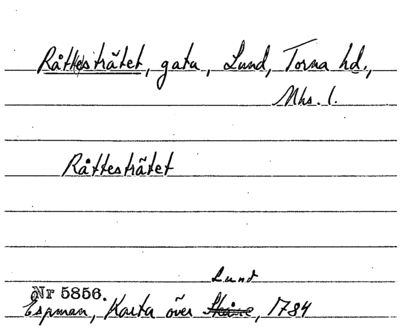 Råttesträtet, gata, Lund, Torna hd.,
Mhs. l.
Råttesträtet
Lund
Nr 5856.
Espman, Karta över Skåne, 1784